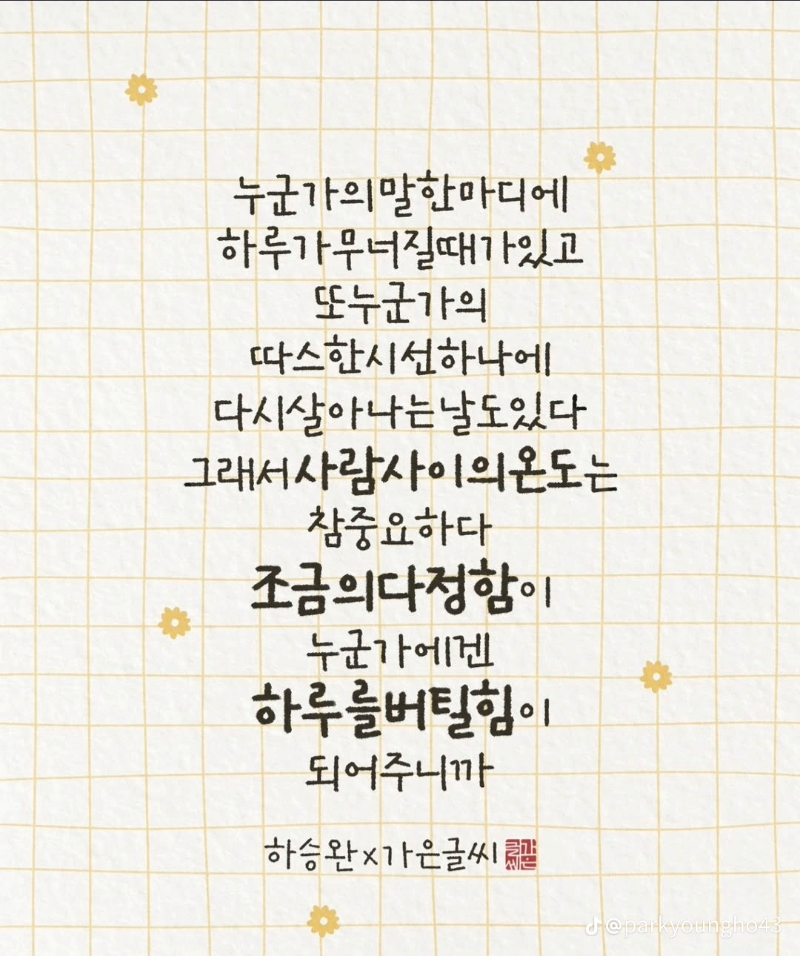 누군가의말한마디에
하루가무너질때가있고
또누군가의
따스한시선하나에
다시살아나는날도있다
그래서사람사이의온도는
참중요하다
조금의다정함이
누군가에겐
하루를버틸힘이
되어주니까
하승완x가은글씨
가은글씨
@parkyoungho43